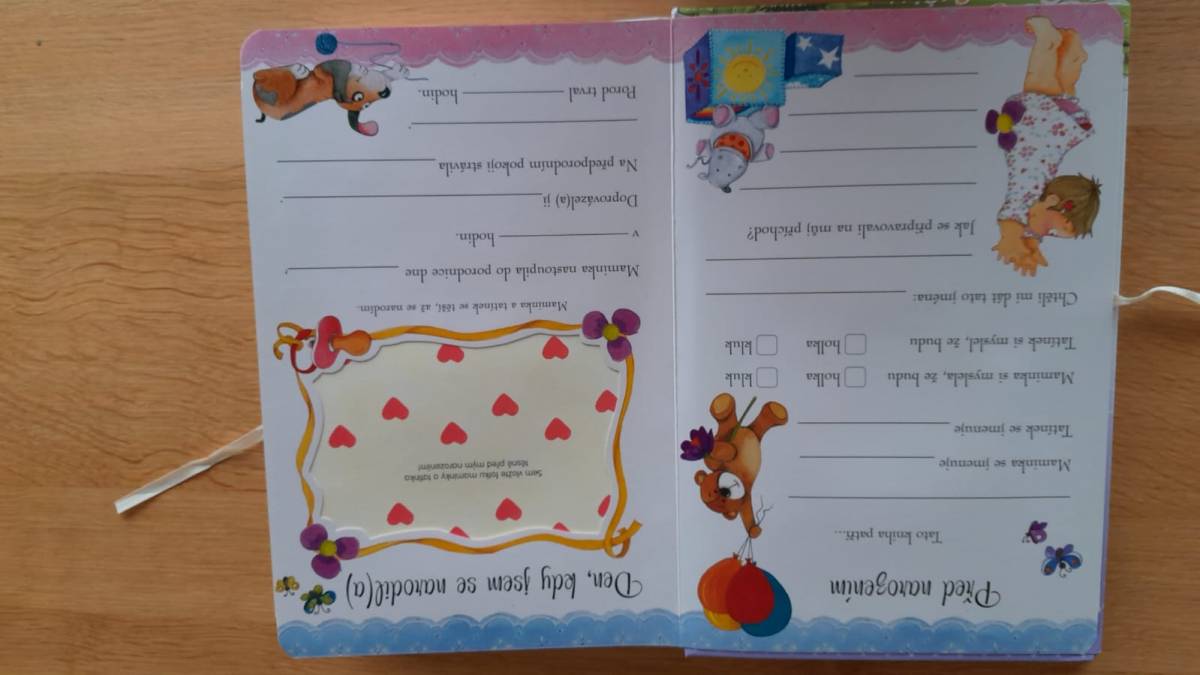 Před narozením
Tato kniha patří...
Maminka se jmenuje
Tatínek se jmenuje
Maminka si myslela, že budu holka kluk
Tatínek si myslel, že budu holka kluk
Chtěli mi dát tato jména:
Jak se připravovali na můj příchod?
Den, kdy jsem se narodil(a)
Sem vložte fotku maminky a tatínka
těsně před mým narozením!
Maminka a tatínek se těší, až se narodím.
Maminka nastoupila do porodnice dne ,
v hodin.
Doprovázel(a) ji .
Na předporodním pokoji strávila
.
Porod trval hodin.